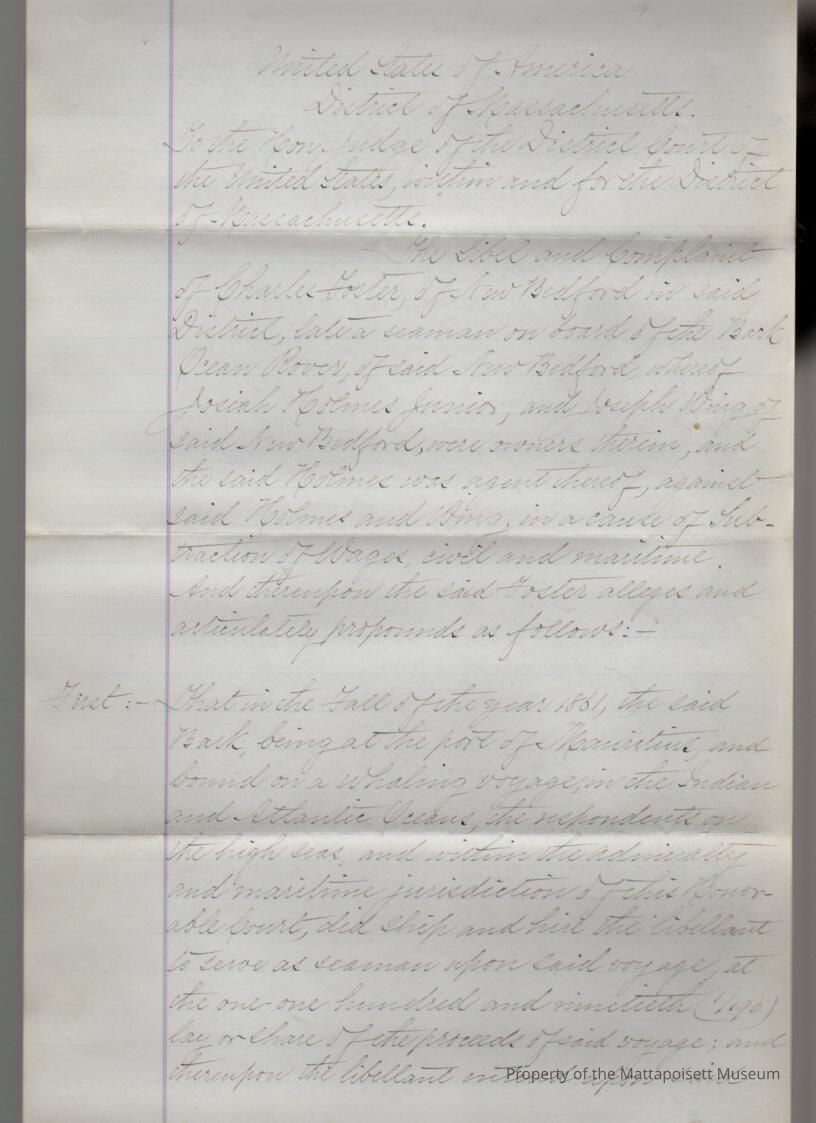 United States of America
District of Massachusetts.
To the Hon. Judge of the District Court of
the United States, within and for the District
of Massachusetts.
The Libel and Complaint
of Charles Foster, of New Bedford in said
District, late a seaman on board of the Bark
Ocean Rover, of said New Bedford, whereof
Josiah Holmes Junior, and Joseph Wing of
said New Bedford, were owners therein, and
the said Holmes was agent thereof, against
said Holmes and Wing, in a cause of Sub-
traction of Wages, civil and maritime.
And thereupon the said Foster alleges and
articulately propounds as follows:-
First:- That in the Fall of the year 1861, the said
Bark, being at the port of Mauritius, and
bound on a whaling voyage, in the Indian
and Atlantic Oceans, the respondents on
the high seas, and within the admiralty
and maritime jurisdiction of this Honor-
able Court, did ship and hire the libellant
to serve as seaman upon said voyage, at
the one-one hundred and ninetieth (1/190)
lay or share of the proceeds of said voyage; and
thereupon the libellant entered upon
Property of the Mattapoisett Museum